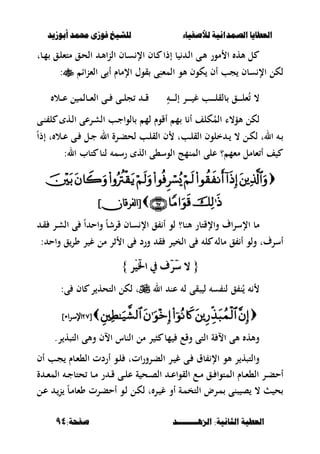 العطايا الصمدانية للأصفياء للشيخ فوزى محمد أبوزيد
كل هذه الأمور هى الدنيا إذا كان الإنسان الزاهد الحق متعلق بها،
لكن الإنسان يجب أن يكون هو المعنى بقول الإمام أبى العزائم :
لا تُعلـق بالقلـب غيـر إلـهٍ قد تجلـى فـى العـالمين عـلاه
لكن هؤلاء المُكلف أنا بهم أقوم لهم بالواجب الشرعى الذى كلفنى
به الله، لكن لا يدخلون القلب، لأن القلب لحضرة الله جل فى علاه، إذاً
كيف أتعامل معهم؟ على المنهج الوسطى الذى رسمه لنا كتاب الله:
﴿ وَالَّذِينَ إِذَا أَنفَقُوا لَمْ يُسْرِفُوا وَلَمْ يَقْتُرُوا وَكَانَ بَيْنَ
ذَٰلِكَ قَوَامًا ﴾ (٦٧) [الفرقان]
ما الإسراف والإقتار هنا؟ لو أنفق الإنسان قرشاً واحداً فى الشر فقد
أسرف، ولو أنفق ماله كله فى الخير فقد ورد فى الأثر من غير طريق واحد:
{ لا سَرَف فِي الْخَيْرِ }
لأنه يُنفق لنفسه ليبقى له عند الله ، لكن التحذير كان فى:
﴿ إِنَّ الْمُبَذِّرِينَ كَانُوا إِخْوَانَ الشَّيَاطِينِ ﴾ [٢٧الإسراء]
وهذه هى الآفة التى وقع فيها كثير من الناس الآن وهى التبذير.
والتبذير هو الإنفاق فى غير الضرورات، فلو أردت الطعام يجب أن
أحضر الطعام المتوافق مع القواعد الصحية على قدر ما تحتاجه المعدة
بحيث لا يصيبنى بمرض التخمة أو غيره، لكن لو أحضرت طعاماً يزيد عن
العطية الثانية: الزهــــد صفحة:٩٤